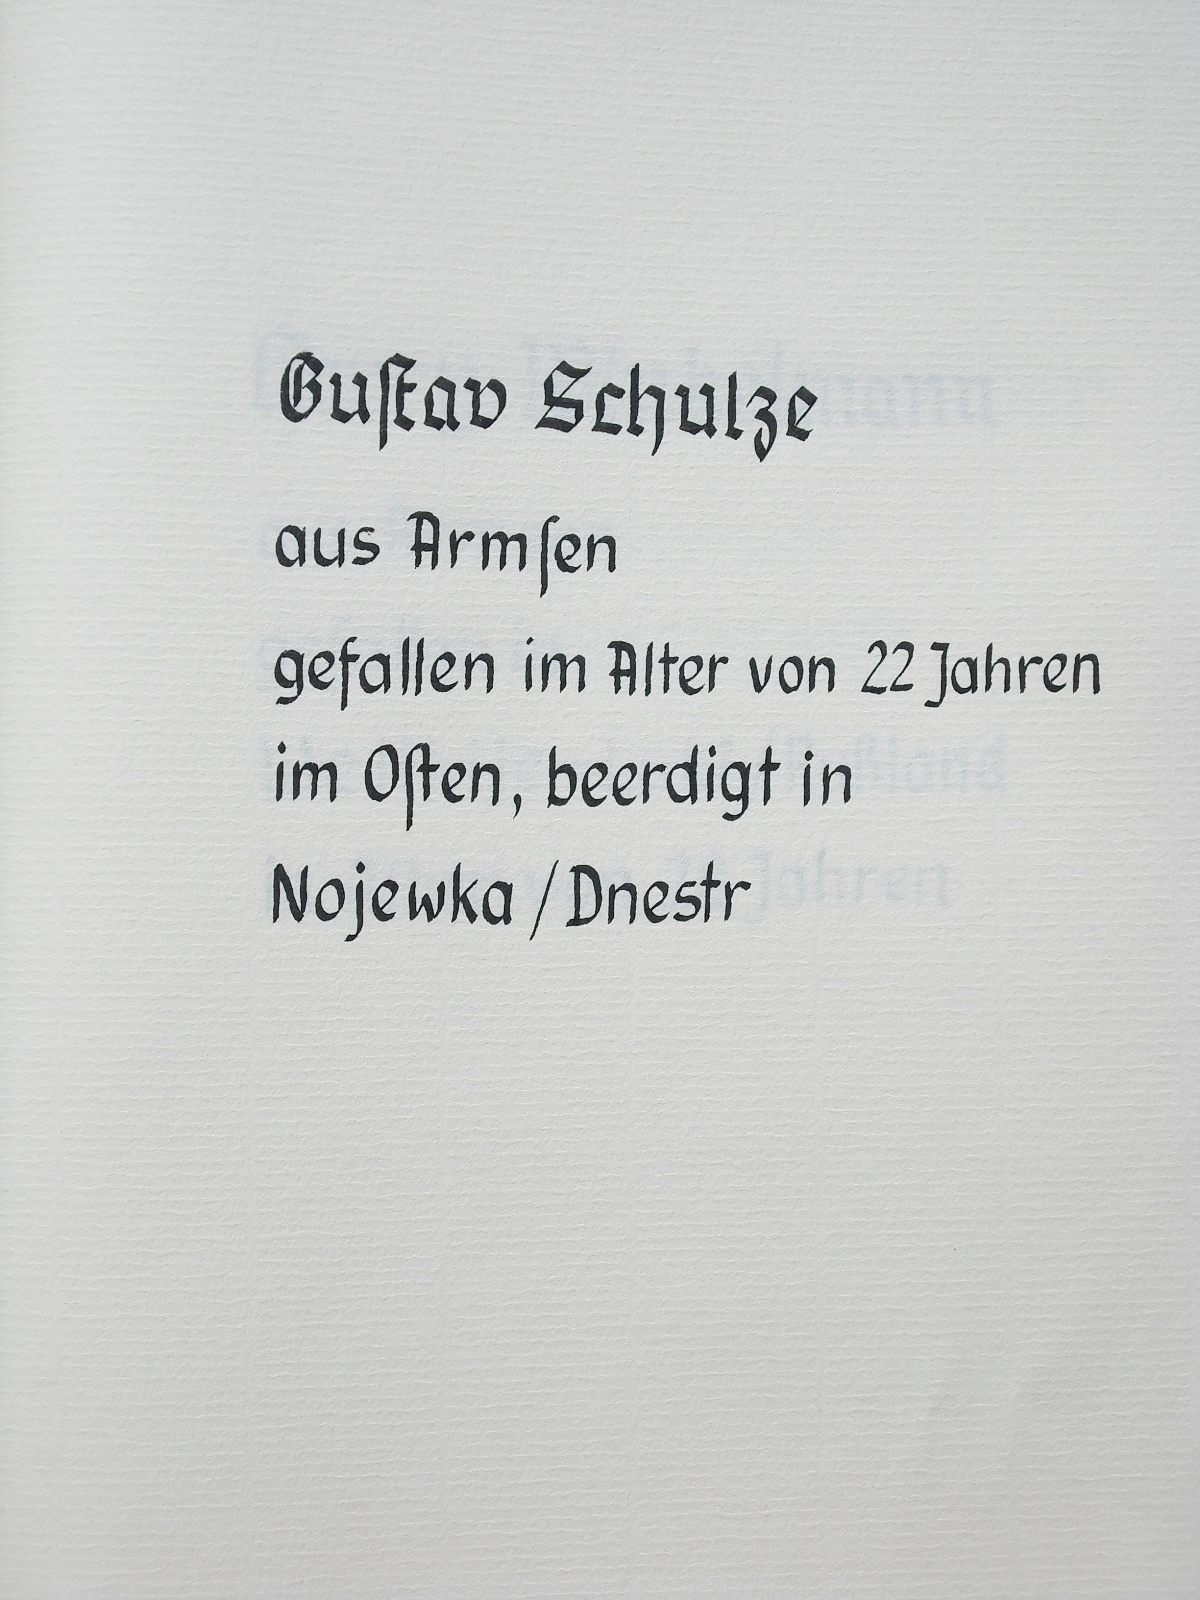 Guſtav Schulze
aus Armſen
gefallen im Alter von 22 Jahren
im Oſten, beerdigt in
Nojewka / Dnestr